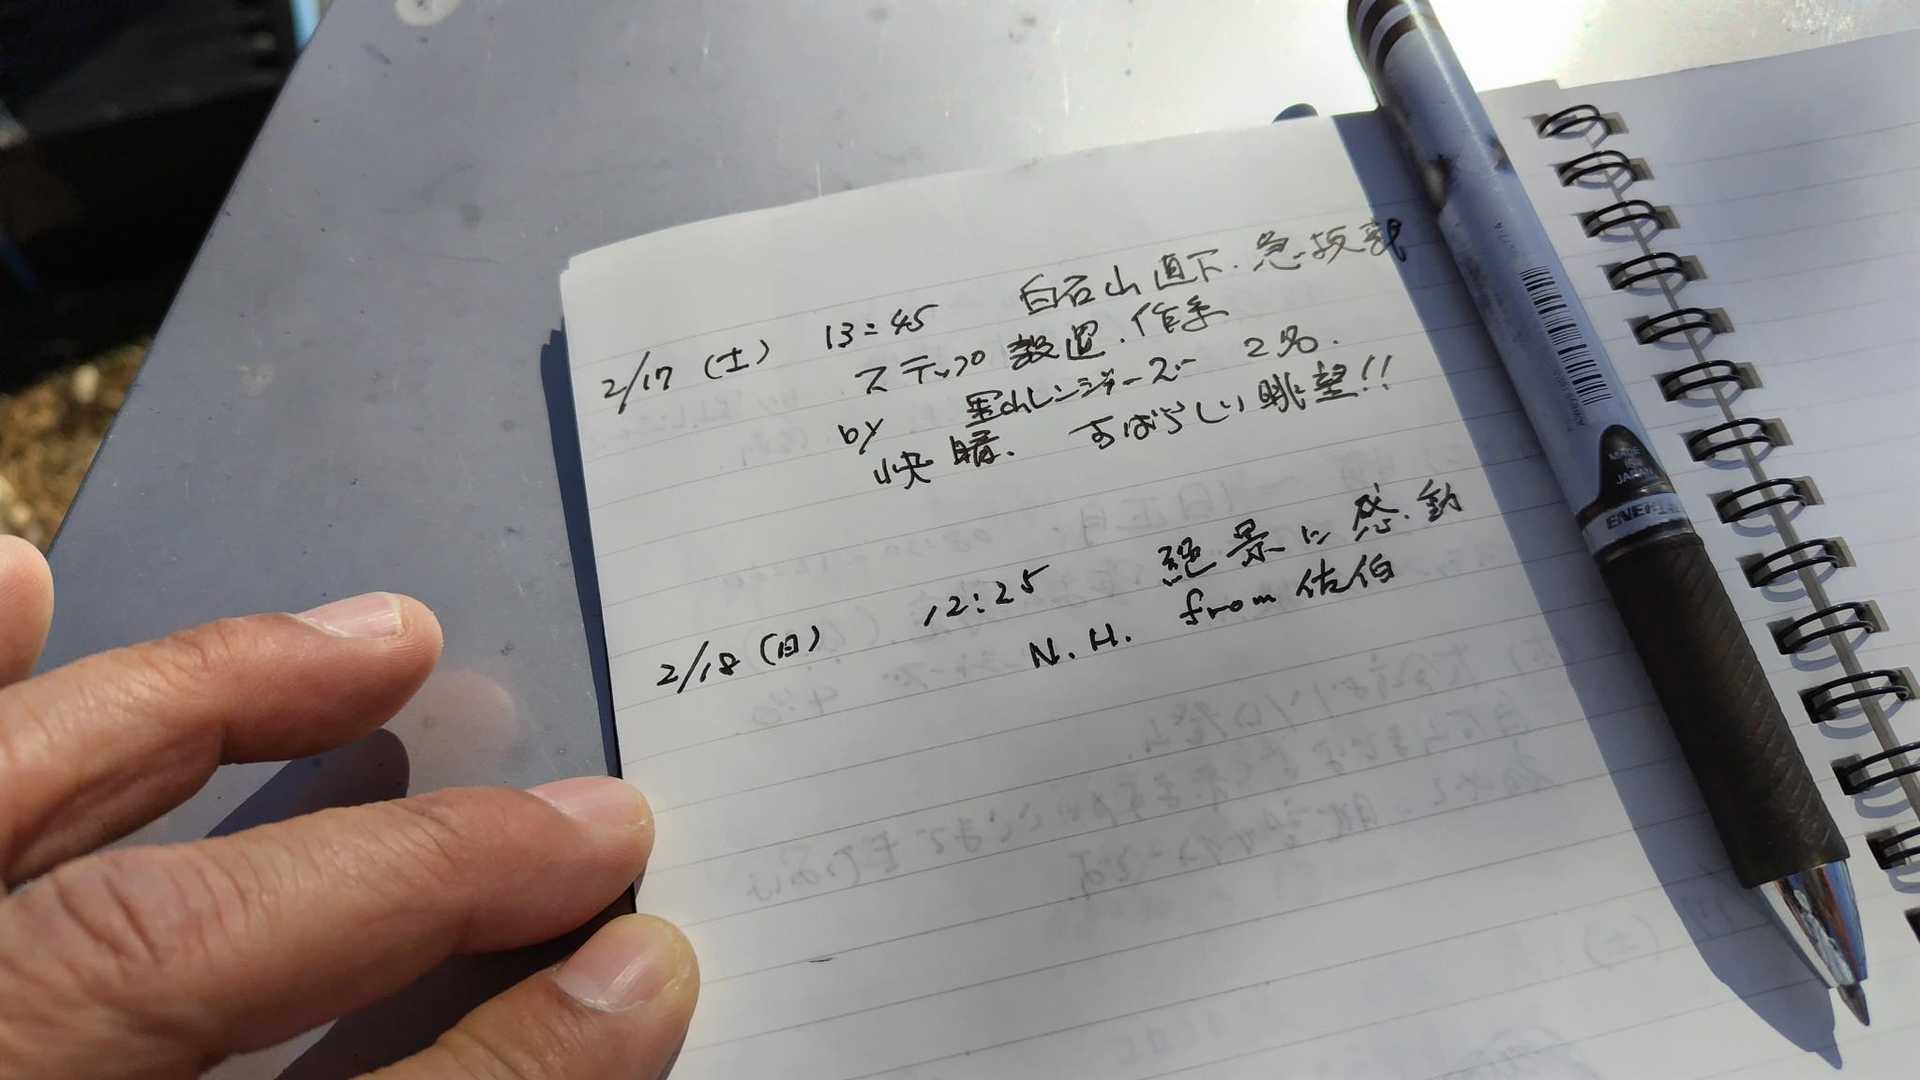 2/17 (土) 13:45 白石山直下.急坂部
ステップ設置.作業
by 里山レンジャーズ 2名.
快晴. すばらしい眺望!!
2/18 (日) 12:25 絶景に感動
N.H. from 佐伯
MADE IN JAPAN
ENER